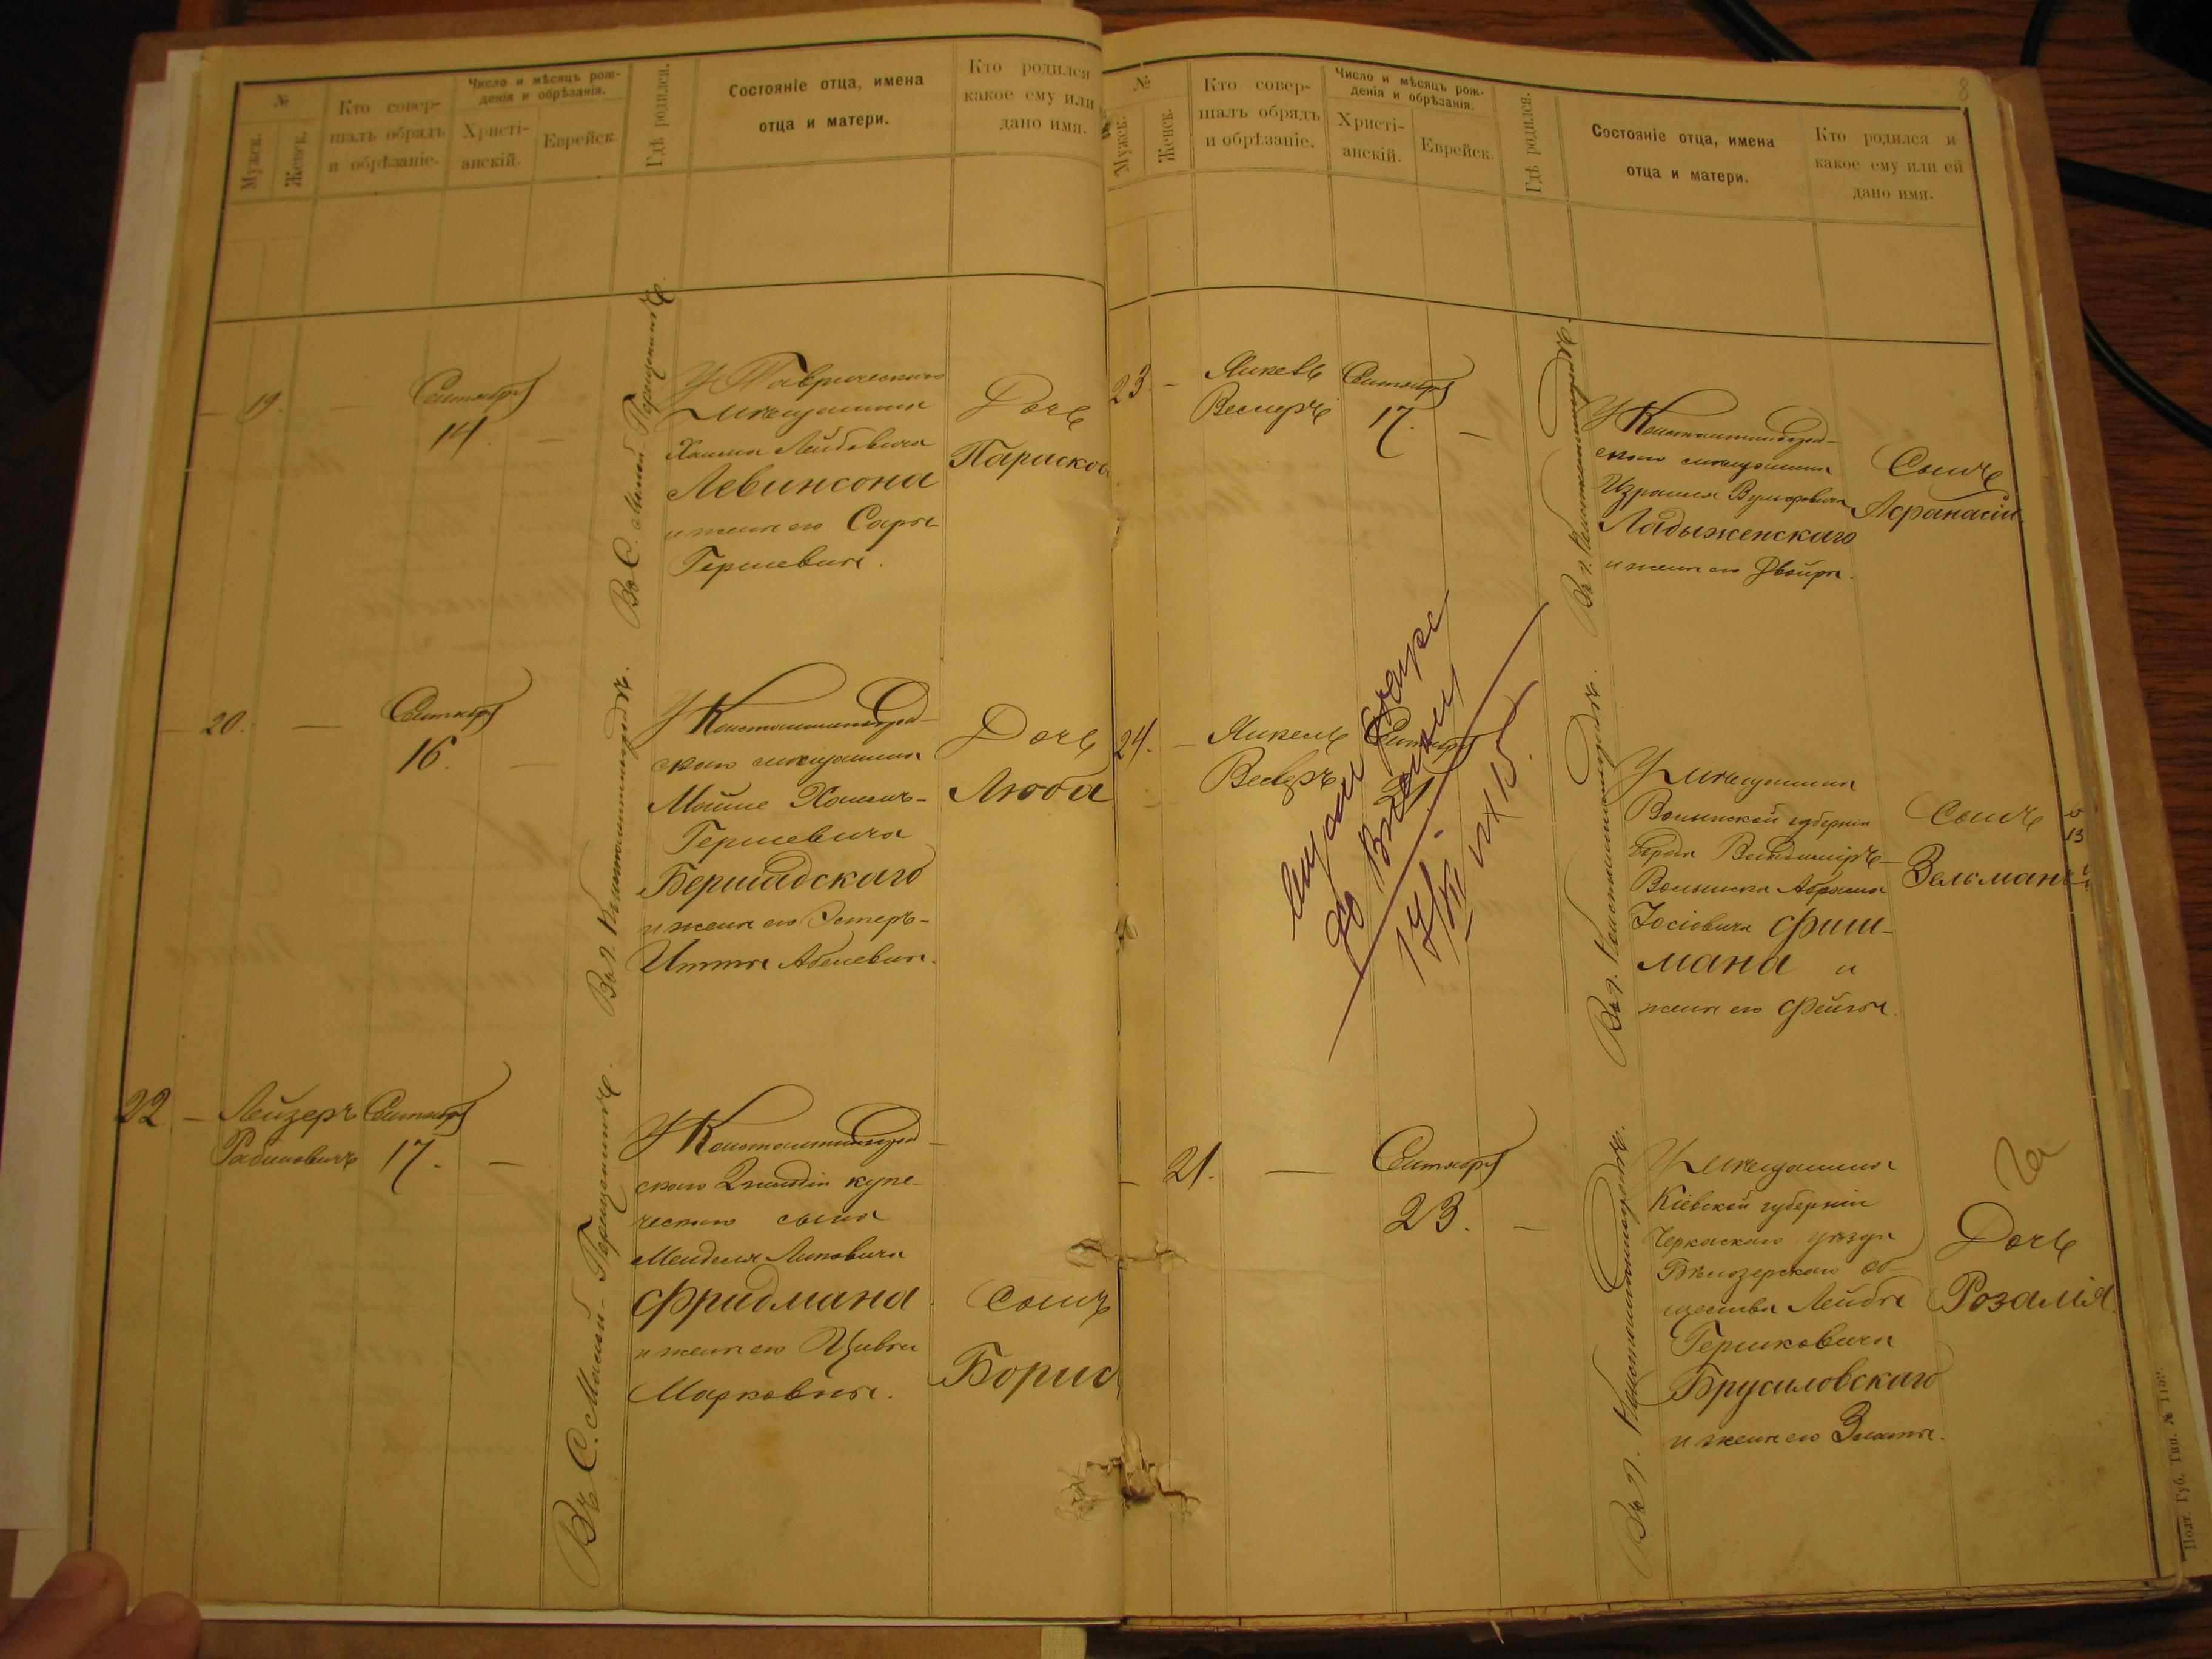 №
Мужск.
Женск.
Кто совер-
шалъ обрядъ
и обрѣзаніе.
Число и мѣсяцъ рож-
денія и обрѣзанія.
Христі-
анскій.
Еврейск.
Гдѣ родился.
Состояніе отца, имена
отца и матери.
Кто родился
какое ему или
дано имя.
19.
Сентябрь
14.
Въ С. Малой-Перещепинѣ.
У Таврическаго
мѣщанина
Хаима Лейбовича
Левинсона
и жены его Сары
Гершевны.
Дочь
Парасков
20.
Сентябрь
16.
Въ г. Константиноградѣ.
У Константиноград-
скаго мѣщанина
Мойше Хаимъ-
Гершевича
Бершадскаго
и жены его Эстеръ-
Итты Абелевны.
Дочь
Люба
22
Лейзеръ
Рабиновичъ
Сентябрь
17.
Въ С. Малой-Перещепинѣ.
У Константиноград-
скаго 2 гильдіи купе-
ческаго сына
Менделя
Фридмана
и жены его Цивьи
Марковны.
Сынъ
Борис
8
№
Мужск.
Женск.
Кто совер-
шалъ обрядъ
и обрѣзаніе.
Число и мѣсяцъ рож-
денія и обрѣзанія.
Христі-
анскій.
Еврейск.
Гдѣ родился.
Состояніе отца, имена
отца и матери.
Кто родился и
какое ему или ей
дано имя.
23.
Янкель
Веснеръ
Сентябрь
17.
Въ г. Константиноградѣ.
У Константиноград-
скаго мѣщанина
Израиля Вульфовича
Ладыженскаго
и жены его Двойры.
Сынъ
Афанасій
24.
Янкель
Сентябрь
Въ г. Константиноградѣ.
У мѣщанина
Волынской губерніи
города Владиміръ-
Волынска Абрама
Іосіовича Фиш-
мана и
жены его Фейгы.
Сынъ
Зельманъ
21.
Сентябрь
23.
Въ г. Константиноградѣ.
У мѣщанина
Кіевской губерніи
Черкаскаго уѣзда
Бѣлозерскаго об-
щества Лейбы
Гершковича
Брусиловскаго
и жены его Златы.
Дочь
Розалія.
Полт. Губ. Тип. №